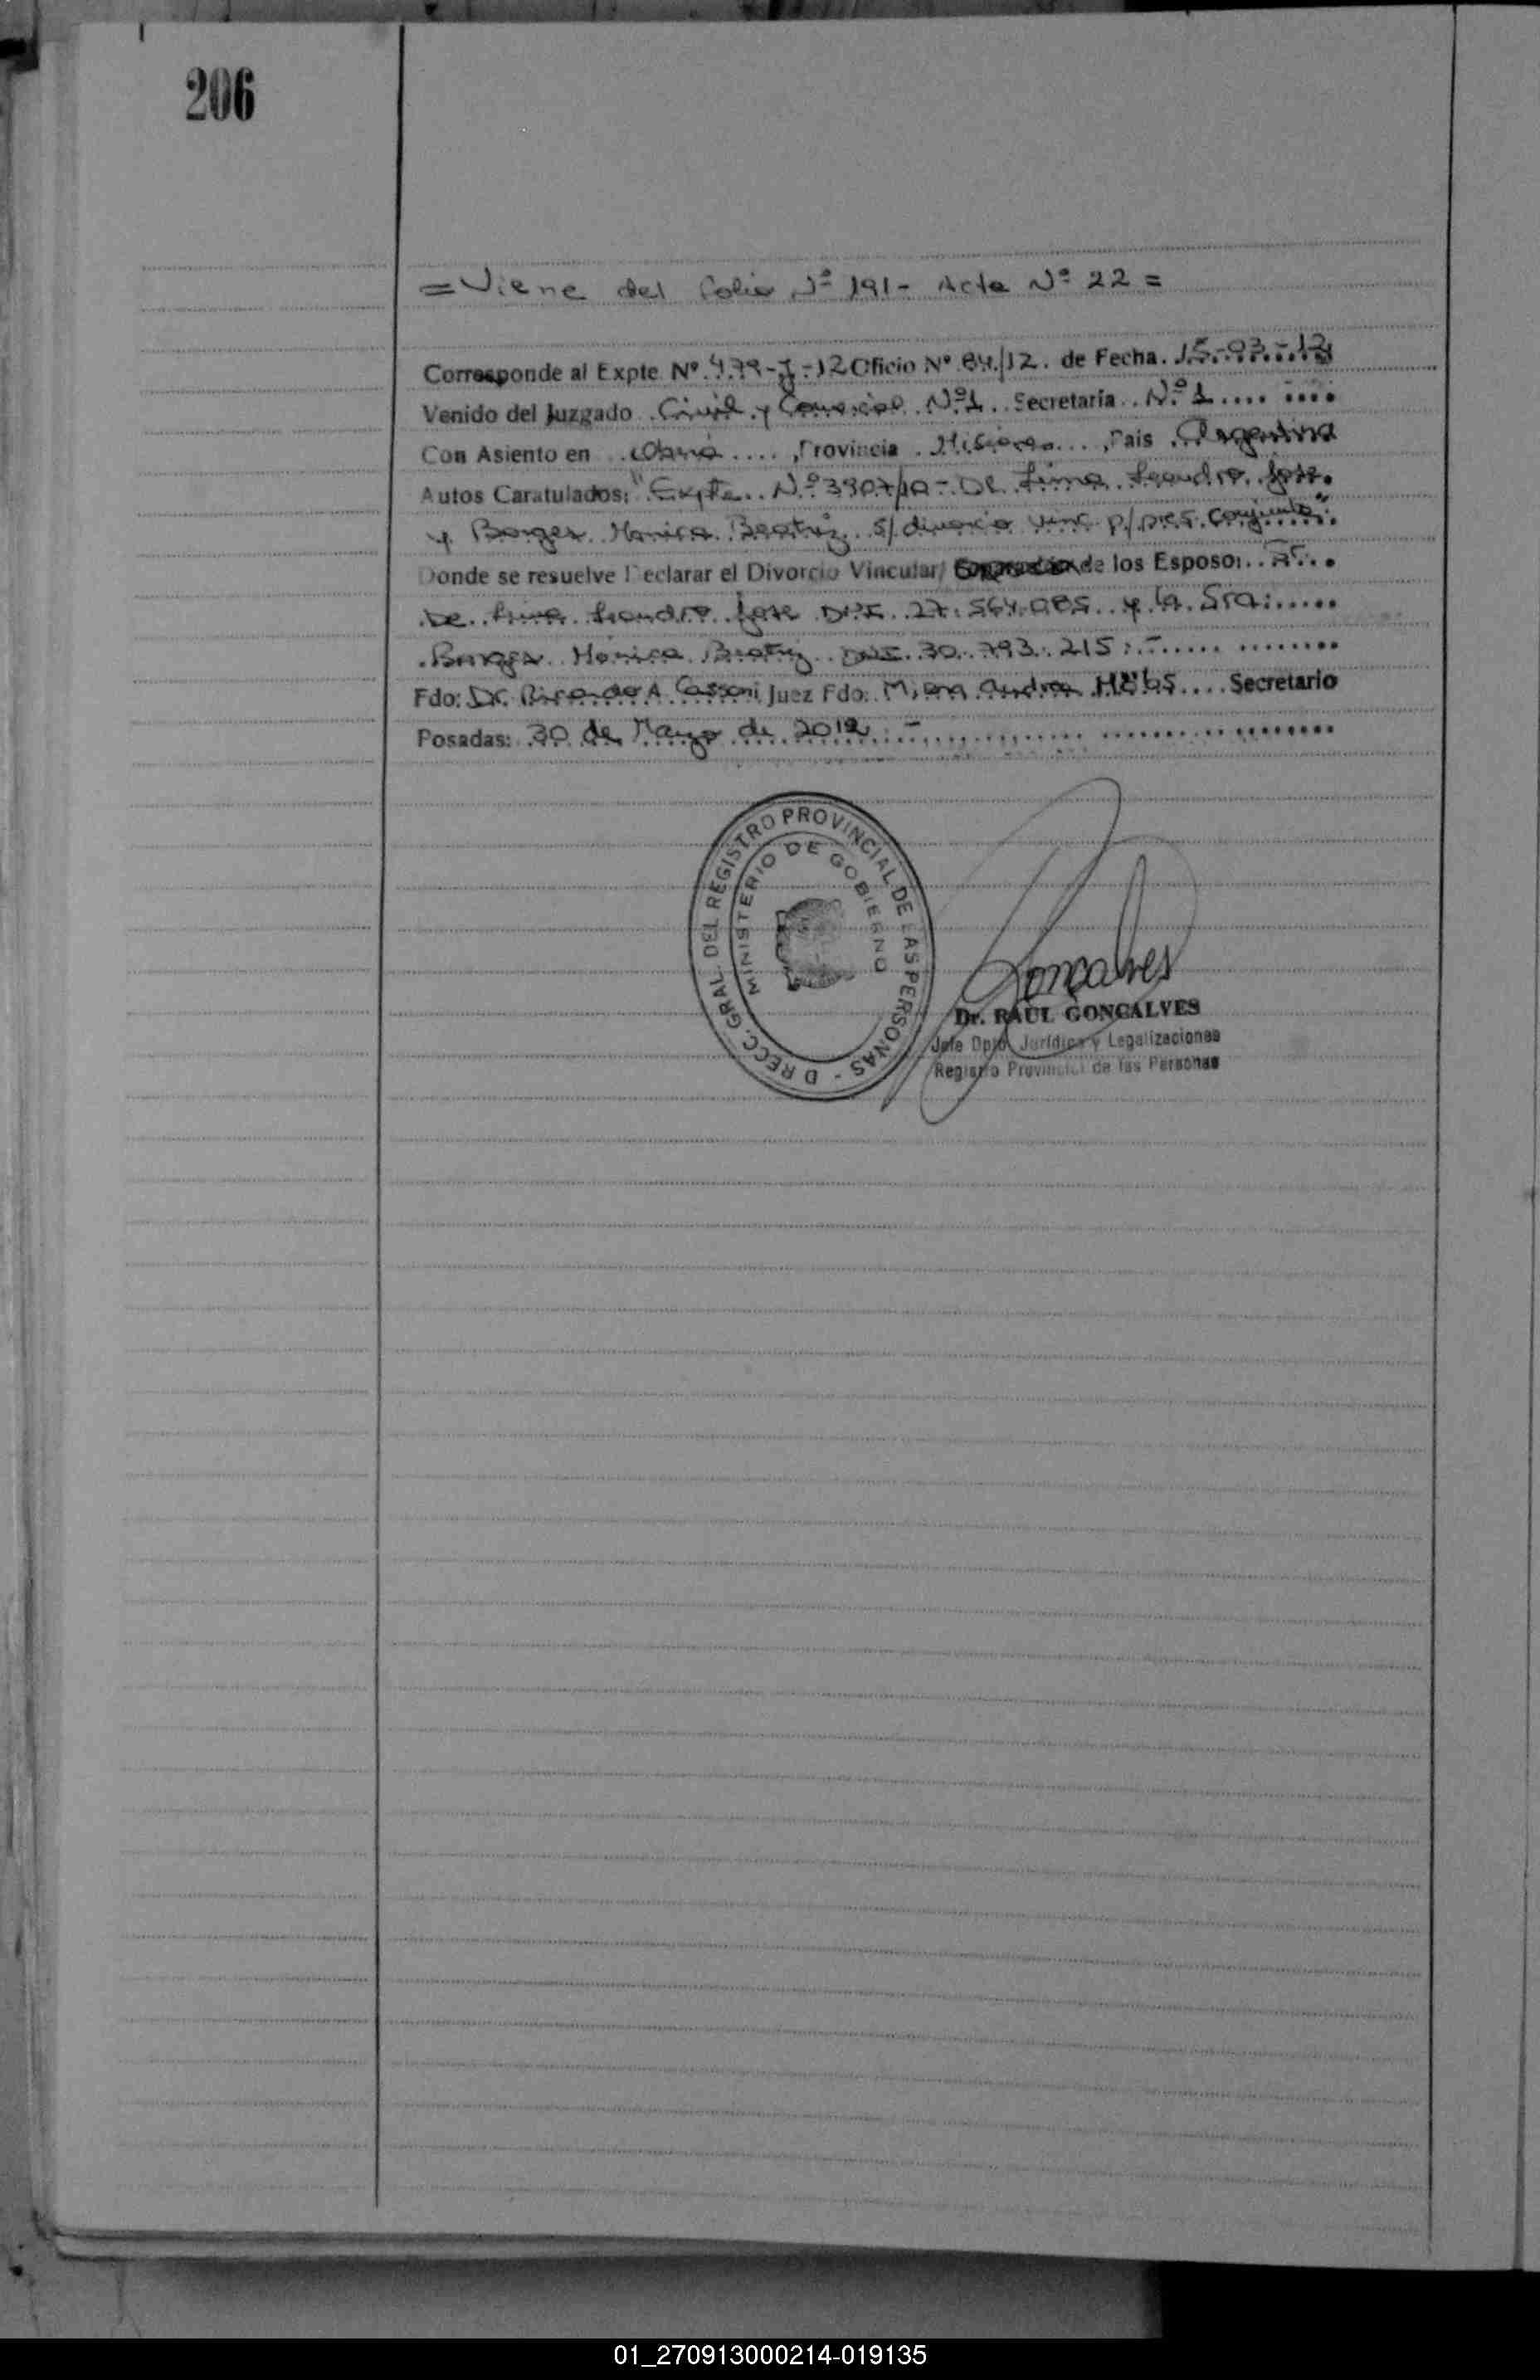 206
= Viene del Folio Nº 191 - Acta Nº 22 =
Corresponde al Expte Nº 479-J-12 Oficio Nº 84/12. de Fecha. 15-03-12
Venido del Juzgado Civil y Comercial Nº1 Secretaria Nº 1
Con Asiento en Oberá, Provincia Misiones, Pais Argentina
Autos Caratulados: "Expte. Nº 3907/10 - De Lima Leandro Jose
y Borges Monica Beatriz s/ divorcio vinc p/ pres. Conjunta"
Donde se resuelve Declarar el Divorcio Vincular/ de los Esposo: Sr.
De Lima Leandro Jose DNI. 27.564.085 y la Sra:
Borges Monica Beatriz DNI. 30.793.215: -
Fdo: Dr. Ricardo A Cassoni Juez Fdo: Andrea Secretario
Posadas: 30 de Mayo de 2012 -
DIRECC. GRAL. DEL REGISTRO PROVINCIAL DE LAS PERSONAS -
MINISTERIO DE GOBIERNO
Goncalves
Dr. RAUL GONCALVES
Jefe Dpto. Jurídico y Legalizaciones
Registro Provincial de las Personas
01_270913000214-019135